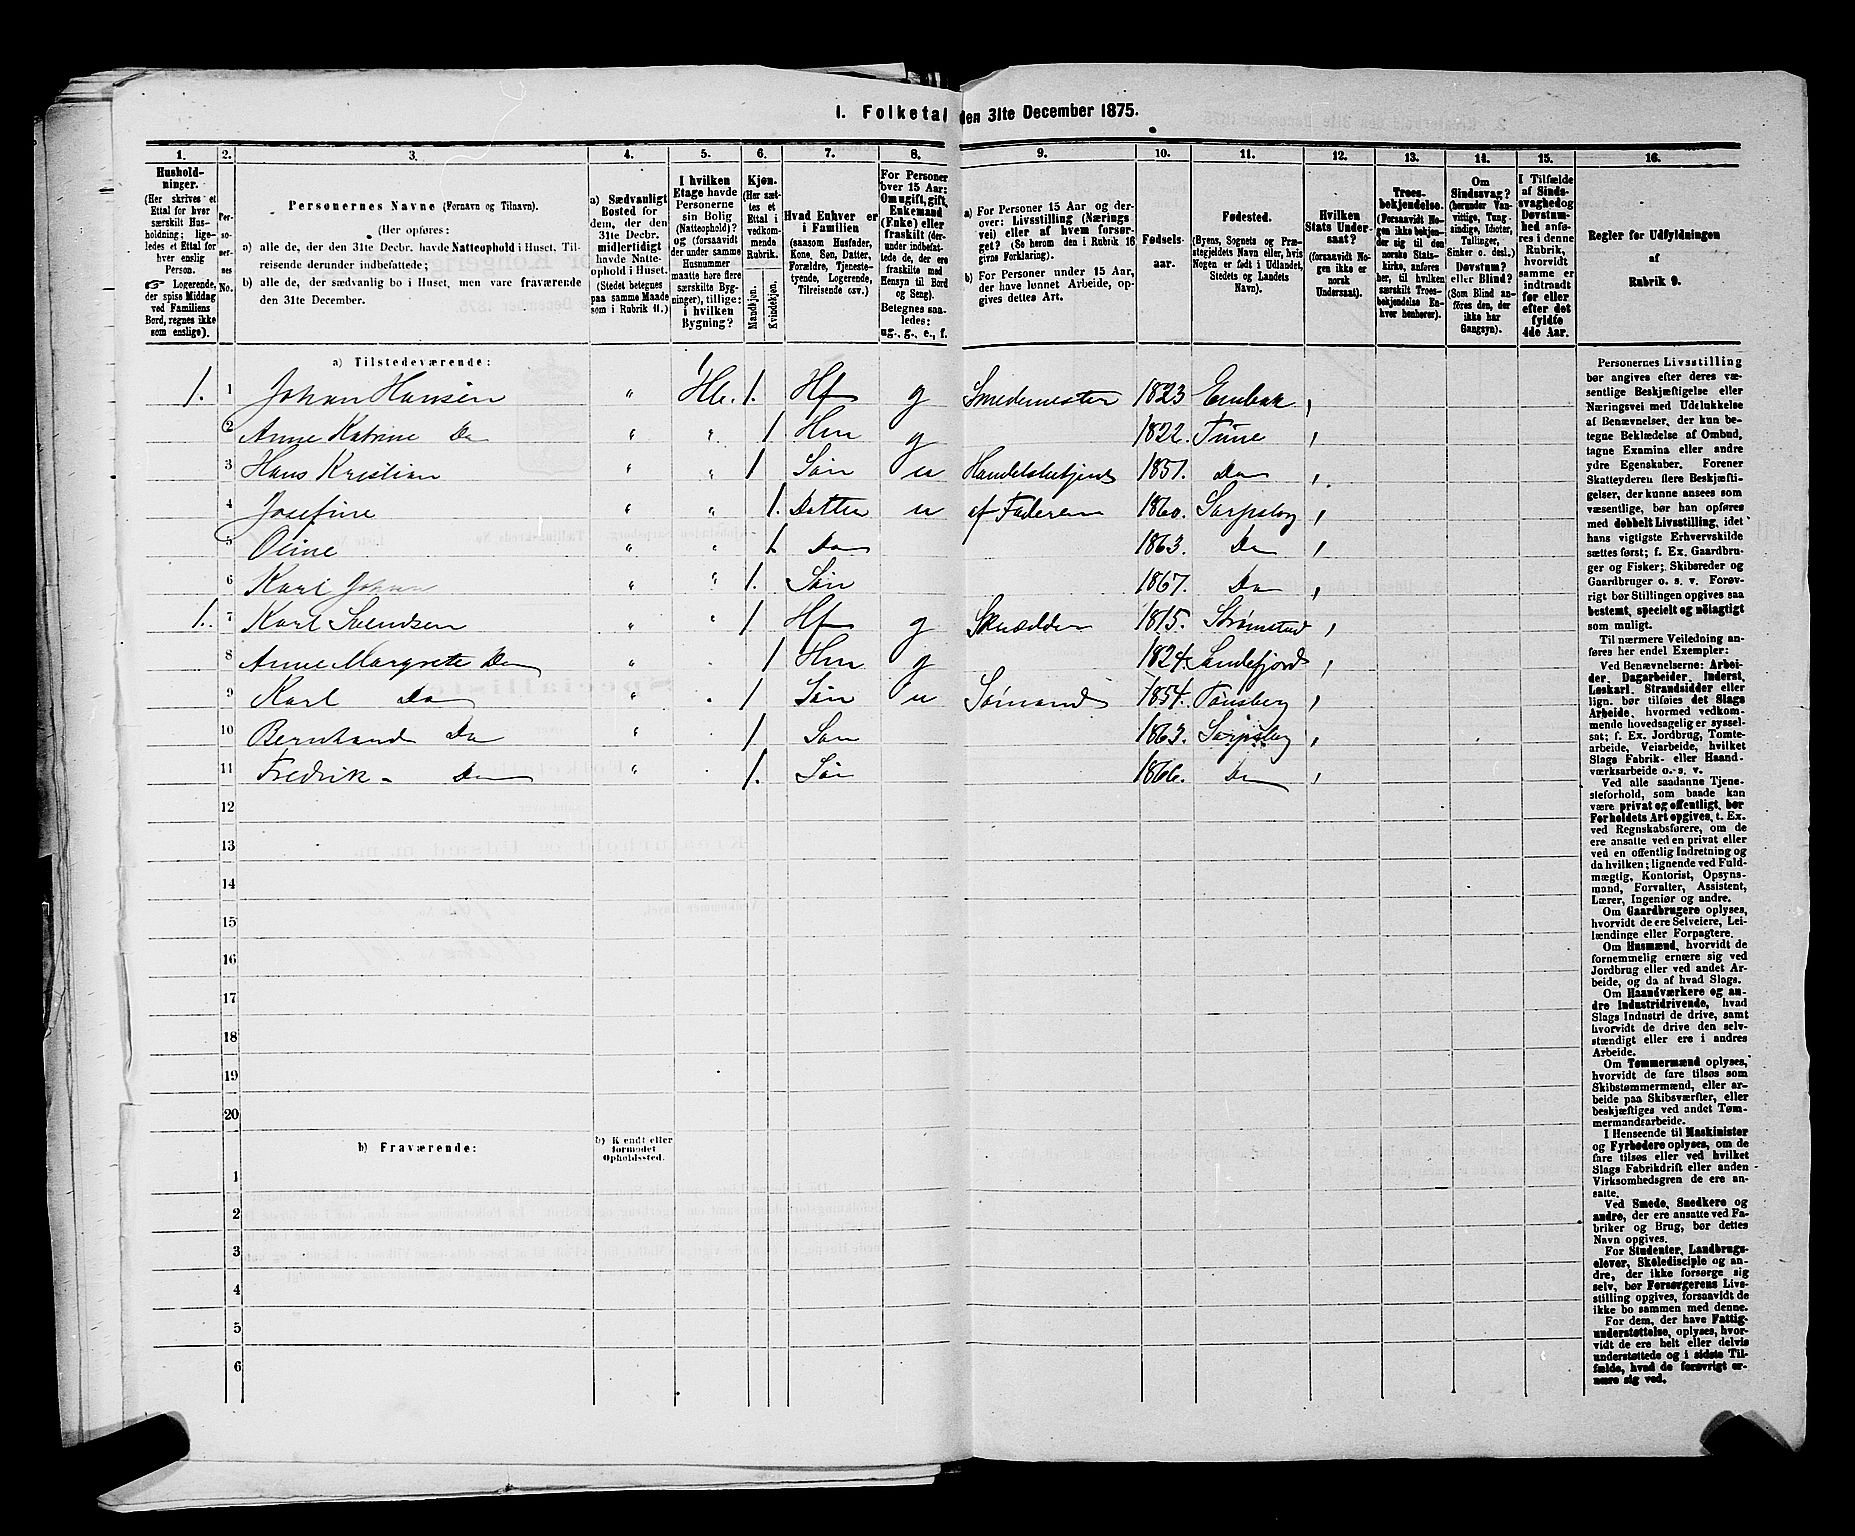 1. Folketal den 31te December 1875.
1. 2. 3. 4. 5. 6. 7. 8. 9. 10. 11. 12. 13. 14. 15. 16.
Hushold-
ninger.
(Her skrives et
Ettal for hver
særskilt Hus-
holdning; lige-
ledes et Ettal for
hver enslig
Person.
☞ Logerende,
der spise Middag
ved Familiens
Bord, regnes ikke
som enslige).
Per-
so-
ner-
nes
No.
Personernes Navne (Fornavn og Tilnavn).
(Her opføres:
a) alle de, der den 31te Decbr. havde Natteophold i Huset, Til-
reisende derunder indbefattede;
b) alle de, der sædvanlig bo i Huset, men vare fraværende
den 31te December.
a) Sædvanligt
Bosted for
dem, der den
31te Decbr.
midlertidigt
havde Natte-
ophold i Huset.
(Stedet betegnes
paa samme Maade
som i Rubrik 11.)
I hvilken
Etage havde
Personerne
sin Bolig
(Natteophold)?
og (forsaavidt
der under samme
Husnummer
maatte høre flere
særskilte Byg-
ninger), tillige:
i hvilken
Bygning?
Kjøn.
(Her sæt-
tes et
Ettal i
vedkom-
mende
Rubrik.
Mandkjøn.
Kvindekjøn.
Hvad Enhver er
i Familien
(saasom Husfader,
Kone, Søn, Datter,
Forældre, Tjeneste-
tyende, Logerende,
Tilreisende osv.)
For Personer
over 15 Aar:
Om ugift, gift,
Enkemand
(Enke) eller
fraskilt (der-
under indbefat-
tede de, der ere
fraskilte med
Hensyn til Bord
og Seng).
Betegnes saa-
ledes:
ug., g., e., f.
a) For Personer 15 Aar og der-
over: Livsstilling (Nærings-
vei) eller af hvem forsør-
get? (Se herom den i Rubrik 16
givne Forklaring).
b) For Personer under 15 Aar,
der have lønnet Arbeide, op-
gives dettes Art.
Fødsels-
aar.
Fødested.
(Byens, Sognets og Præ-
stegjeldets Navn eller, hvis
Nogen er født i Udlandet,
Stedets og Landets
Navn).
Hvilken
Stats Under-
saat?
(forsaavidt No-
gen ikke er
norsk
Undersaat).
Troes-
bekjendelse.
(Forsaavidt No-
gen ikke bekjen-
der sig til den
norske Stats-
kirke, anføres
her, til hvilken
særskilt Troes-
bekjendelse En-
hver henhører).
Om
Sindssvag?
(herunder Van-
vittige, Tung-
sindige, Idioter,
Tullinger,
Sinker o. desl.)
Døvstum?
eller Blind?
(Som Blind an-
føres den, der
ikke har
Gangsyn).
I Tilfælde
af Sinds-
svaghed og
Døvstum-
hed anfø-
res i denne
Rubrik,
hvorvidt
samme er
indtraadt
før eller
efter det
fyldte
4de Aar.
Regler før Udfyldningen
af
Rubrik 9.
a) Tilstedeværende:
1. 1 Johan Hansen " 1 He. 1. Hf g Smedemester 1823 ,
2 Anne Katrine Do " " 1 Hm g 1822. Tune ,
3 Hans Kristian " " 1 Søn u Handelsbetjent 1851. Do ,
4 Josefine " " 1. Datter u af Faderen 1860. Sarpsborg ,
5 Oline " " 1. Do 1863. Do ,
6 Karl Johan " " 1. Søn 1867. Do ,
1. 7 Karl Svendsen " " 1. Hf g Skrædder 1815. Strømstad ,
8 Anne Margrete Do " 1 Hm g 1824. Sandefjord ,
9 Karl Do " 1 Søn u Sømand 1854. Tønsberg ,
10 Bernhand Do " 1 Søn 1863. Sarpsborg ,
11 Fredrik - Do " 1. Søn 1866. Do ,
12
13
14
15
16
17
18
19
20
b) Fraværende:
b) Kendt eller
formodet
Opholdssted.
1
2
3
4
5
6
Personernes Livsstilling
bør angives efter deres væ-
sentlige Beskjæftigelse eller
Næringsvei med Udelukkelse
af Benævnelser, der kun be-
tegne Beklædelse af Ombud,
tagne Examina eller andre
ydre Egenskaber. Forener
Skatteyderen flere Beskjæfti-
gelser, der kunne ansees som
væsentlige, bør han opføres
med dobbelt Livsstilling, idet
hans vigtigste Erhvervskilde
sættes først; f. Ex. Gaardbru-
ger og Fisker; Skibsreder og
Gaardbruger o. s. v. Forøv-
rigt bør Stillingen opgives saa
bestemt, specielt og nöiagtigt
som muligt.
Til nærmere Veiledning an-
føres her endel Exempler:
Ved Benævnelserne: Arbei-
der, Dagarbeider, Inderst,
Løskarl, Strandsidder eller
lign. bør tilføies det Slags
Arbeide, hvormed vedkom-
mende hovedsagelig er syssel-
sat; f. Ex. Jordbrug, Tomte-
arbeide, Veiarbeide, hvilket
Slags Fabrik- eller Haand-
værksarbeide o. s. v.
Ved alle saadanne Tjene-
steforhold, som baade kan
være privat og offentligt, bør
Forholdets Art opgives, t. Ex.
ved Regnskabsførere, om de
ere ansatte ved en privat eller
ved en offentlig Indretning og
da hvilken; lignende ved Fuld-
mægtig, Kontorist, Opsyns-
mand, Forvalter, Assistent,
Lærer, Ingeniør og andre.
Om Gaardbrugere oplyses,
hvorvidt de ere Selveiere, Lei-
lændinge eller Forpagtere.
Om Husmænd, hvorvidt de
fornemmelig ernære sig ved
Jordbrug eller ved andet Ar-
beide, og da af hvad Slags.
Om Haandværkere og an-
dre Industridrivende, hvad
Slags Industri de drive, samt
hvorvidt de drive den selv-
stændigt eller ere i andres
Arbeide.
Om Tømmermænd oplyses,
hvorvidt de fare tilsøs som
Skibstømmermænd, eller ar-
beide paa Skibsværfter, eller
beskjæftiges ved andet Tøm-
mermandsarbeide.
I Henseende til Maskinister
og Fyrbødere oplyses, om de
fare tilsøs eller ved hvilket
Slags Fabrikdrift eller anden
Virksomhedsgren de ere an-
satte.
Ved Smede, Snedkere og
andre, der ere ansatte ved Fa-
briker og Brug, bør dettes
Navn opgives.
For Studenter, Landbrugs-
elever, Skoledisciple og an-
dre, der ikke forsørge sig
selv, bør Forsørgerens Livs-
stilling opgives, forsaavidt de
ikke bo sammen med denne.
For dem, der have Fattig-
understøttelse, oplyses, hvor-
vidt de ere helt eller delvis
understøttede og i sidste Til-
fælde, hvad de forøvrigt er-
nære sig ved.